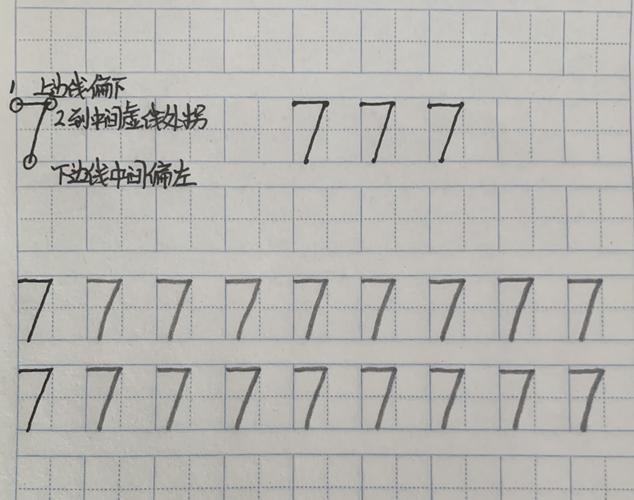 1 上边线偏下
2到中间虚线处拐
下边线中间偏左
7 7 7 7
7 7 7 7 7 7 7 7 7
7 7 7 7 7 7 7 7 7